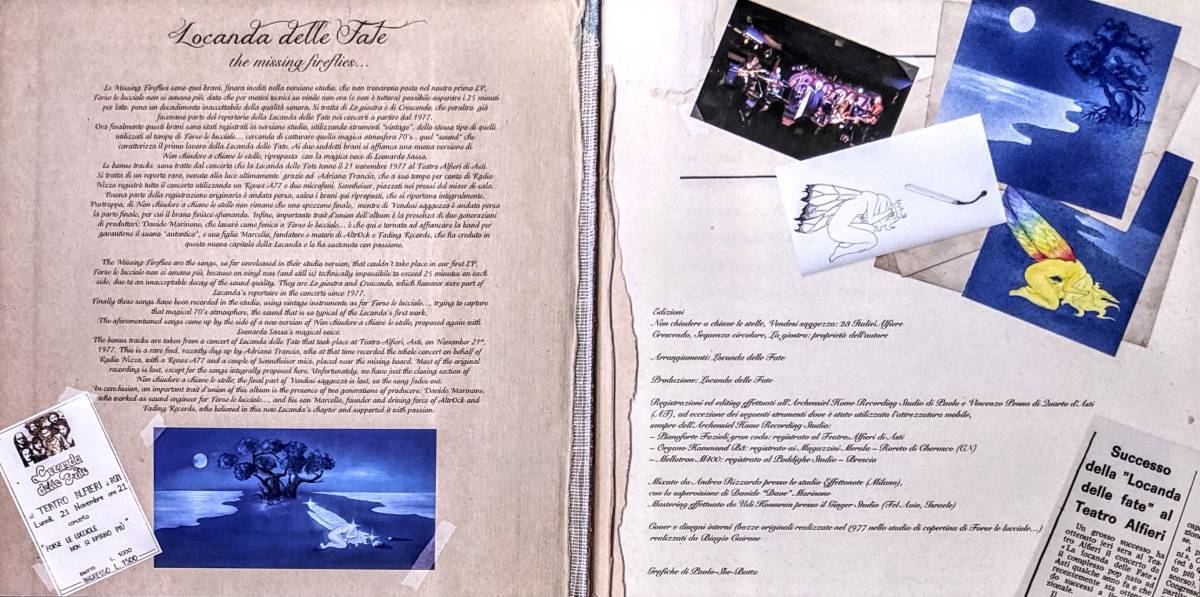 Locanda delle Fate
the missing fireflies...
Le Missing Fireflies sono quei brani, finora inediti nella versione studio, che non trovarono posto nel nostro primo LP,
Forse le lucciole non si amano più, dato che per motivi tecnici su vinile non era (e non è tuttora) possibile superare i 25 minuti
per lato, pena un decadimento inaccettabile della qualità sonora. Si tratta di La giostra e di Crescendo, che peraltro già
facevano parte del repertorio della Locanda delle Fate nei concerti a partire dal 1977.
Ora finalmente questi brani sono stati registrati in versione studio, utilizzando strumenti "vintage", dello stesso tipo di quelli
utilizzati al tempo di Forse le lucciole..., cercando di catturare quella magica atmosfera 70's, quel "sound" che
caratterizza il primo lavoro della Locanda delle Fate. Ai due suddetti brani si affianca una nuova versione di
Non chiudere a chiave le stelle, riproposto con la magica voce di Leonardo Sasso.
Le bonus tracks sono tratte dal concerto che la Locanda delle Fate tenne il 21 novembre 1977 al Teatro Alfieri di Asti.
Si tratta di un reperto raro, venuto alla luce ultimamente grazie ad Adriano Francia, che a suo tempo per conto di Radio
Nizza registrò tutto il concerto utilizzando un Revox A77 e due microfoni Sennheiser, piazzati nei pressi del mixer di sala.
Buona parte della registrazione originaria è andata persa, salvo i brani qui riproposti, che si riportano integralmente.
Purtroppo, di Non chiudere a chiave le stelle non rimane che uno spezzone finale, mentre di Vendesi saggezza è andata persa
la parte finale, per cui il brano finisce sfumando. Infine, importante trait d'union dell'album è la presenza di due generazioni
di produttori: Davide Marinone, che lavorò come fonico a Forse le lucciole... è che qui è tornato ad affiancare la band per
garantirne il suono "autentico", e suo figlio Marcello, fondatore e motore di AltrOck e Fading Records, che ha creduto in
questo nuovo capitolo della Locanda e lo ha sostenuto con passione.
The Missing Fireflies are the songs, so far unreleased in their studio version, that couldn't take place in our first LP,
Forse le lucciole non si amano più, because on vinyl was (and still is) technically impossibile to exceed 25 minutes on each
side, due to an unacceptable decay of the sound quality. They are La giostra and Crescendo, which however were part of
Locanda's repertoire in the concerts since 1977.
Finally these songs have been recorded in the studio, using vintage instruments as for Forse le lucciole..., trying to capture
that magical 70's atmosphere, the sound that is so typical of the Locanda's first work.
The aforementioned songs come up by the side of a new version of Non chiudere a chiave le stelle, proposed again with
Leonardo Sasso's magical voice.
The bonus tracks are taken from a concert of Locanda delle Fate that took place at Teatro Alfieri, Asti, on November 21st,
1977. This is a rare find, recently dug up by Adriano Francia, who at that time recorded the whole concert on behalf of
Radio Nizza, with a Revox A77 and a couple of Sennheiser mics, placed near the mixing board. Most of the original
recording is lost, except for the songs integrally proposed here. Unfortunately, we have just the closing section of
Non chiudere a chiave le stelle; the final part of Vendesi saggezza is lost, so the song fades out.
In conclusion, an important trait d'union of this album is the presence of two generations of producers: Davide Marinone,
who worked as sound engineer for Forse le lucciole..., and his son Marcello, founder and driving force of AltrOck and
Fading Records, who believed in this new Locanda's chapter and supported it with passion.
Locanda
delle Fate
al TEATRO ALFIERI di ASTI
Lunedì 21 Novembre ore 21
concerto
"FORSE LE LUCCIOLE
NON SI AMANO PIÙ"
L. 1000
INGRESSO L. 1500
Edizioni
Non chiudere a chiave le stelle, Vendesi saggezza: 23 Italici/Alfiere
Crescendo, Sequenza circolare, La giostra: proprietà dell'autore
Arrangiamenti: Locanda delle Fate
Produzione: Locanda delle Fate
Registrazioni ed editing effettuati all'Archensiel Home Recording Studio di Paolo e Vincenzo Penna di Quarto d'Asti
(AT), ad eccezione dei seguenti strumenti dove è stata utilizzata l'attrezzatura mobile,
sempre dell'Archensiel Home Recording Studio:
- Pianoforte Fazioli gran coda: registrato al Teatro Alfieri di Asti
- Organo Hammond B3: registrato ai Magazzini Merula - Roreto di Cherasco (CN)
- Mellotron M400: registrato al Poddighe Studio - Brescia
Mixato da Andrea Rizzardo presso lo studio Effettonote (Milano),
con la supervisione di Davide "Dave" Marinone
Mastering effettuato da Udi Koomran presso il Ginger Studio (Tel Aviv, Israele)
Cover e disegni interni (bozze originali realizzate nel 1977 nello studio di copertina di Forse le lucciole...)
realizzati da Biagio Cairone
Grafiche di Paolo-Ske-Botta
Successo
della "Locanda
delle fate" al
Teatro Alfieri
Un grosso successo ha
ottenuto ieri sera al Tea-
tro Alfieri il concerto de
«La locanda delle Fate»
il complesso pop nato ad
Asti qualche anno fa e che
recentemente sta otten
do successi a
zionale.